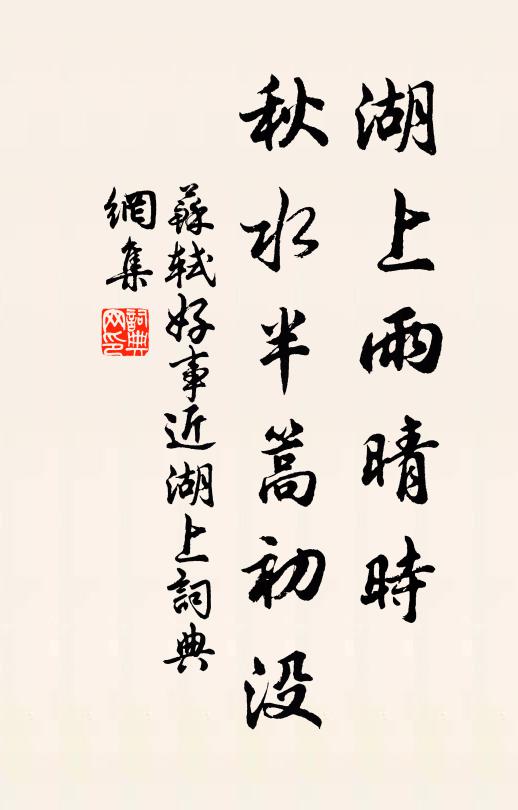 湖上雨晴時
秋水半篙初没
蘇軾好事近湖上詞典
網集
詞典網印